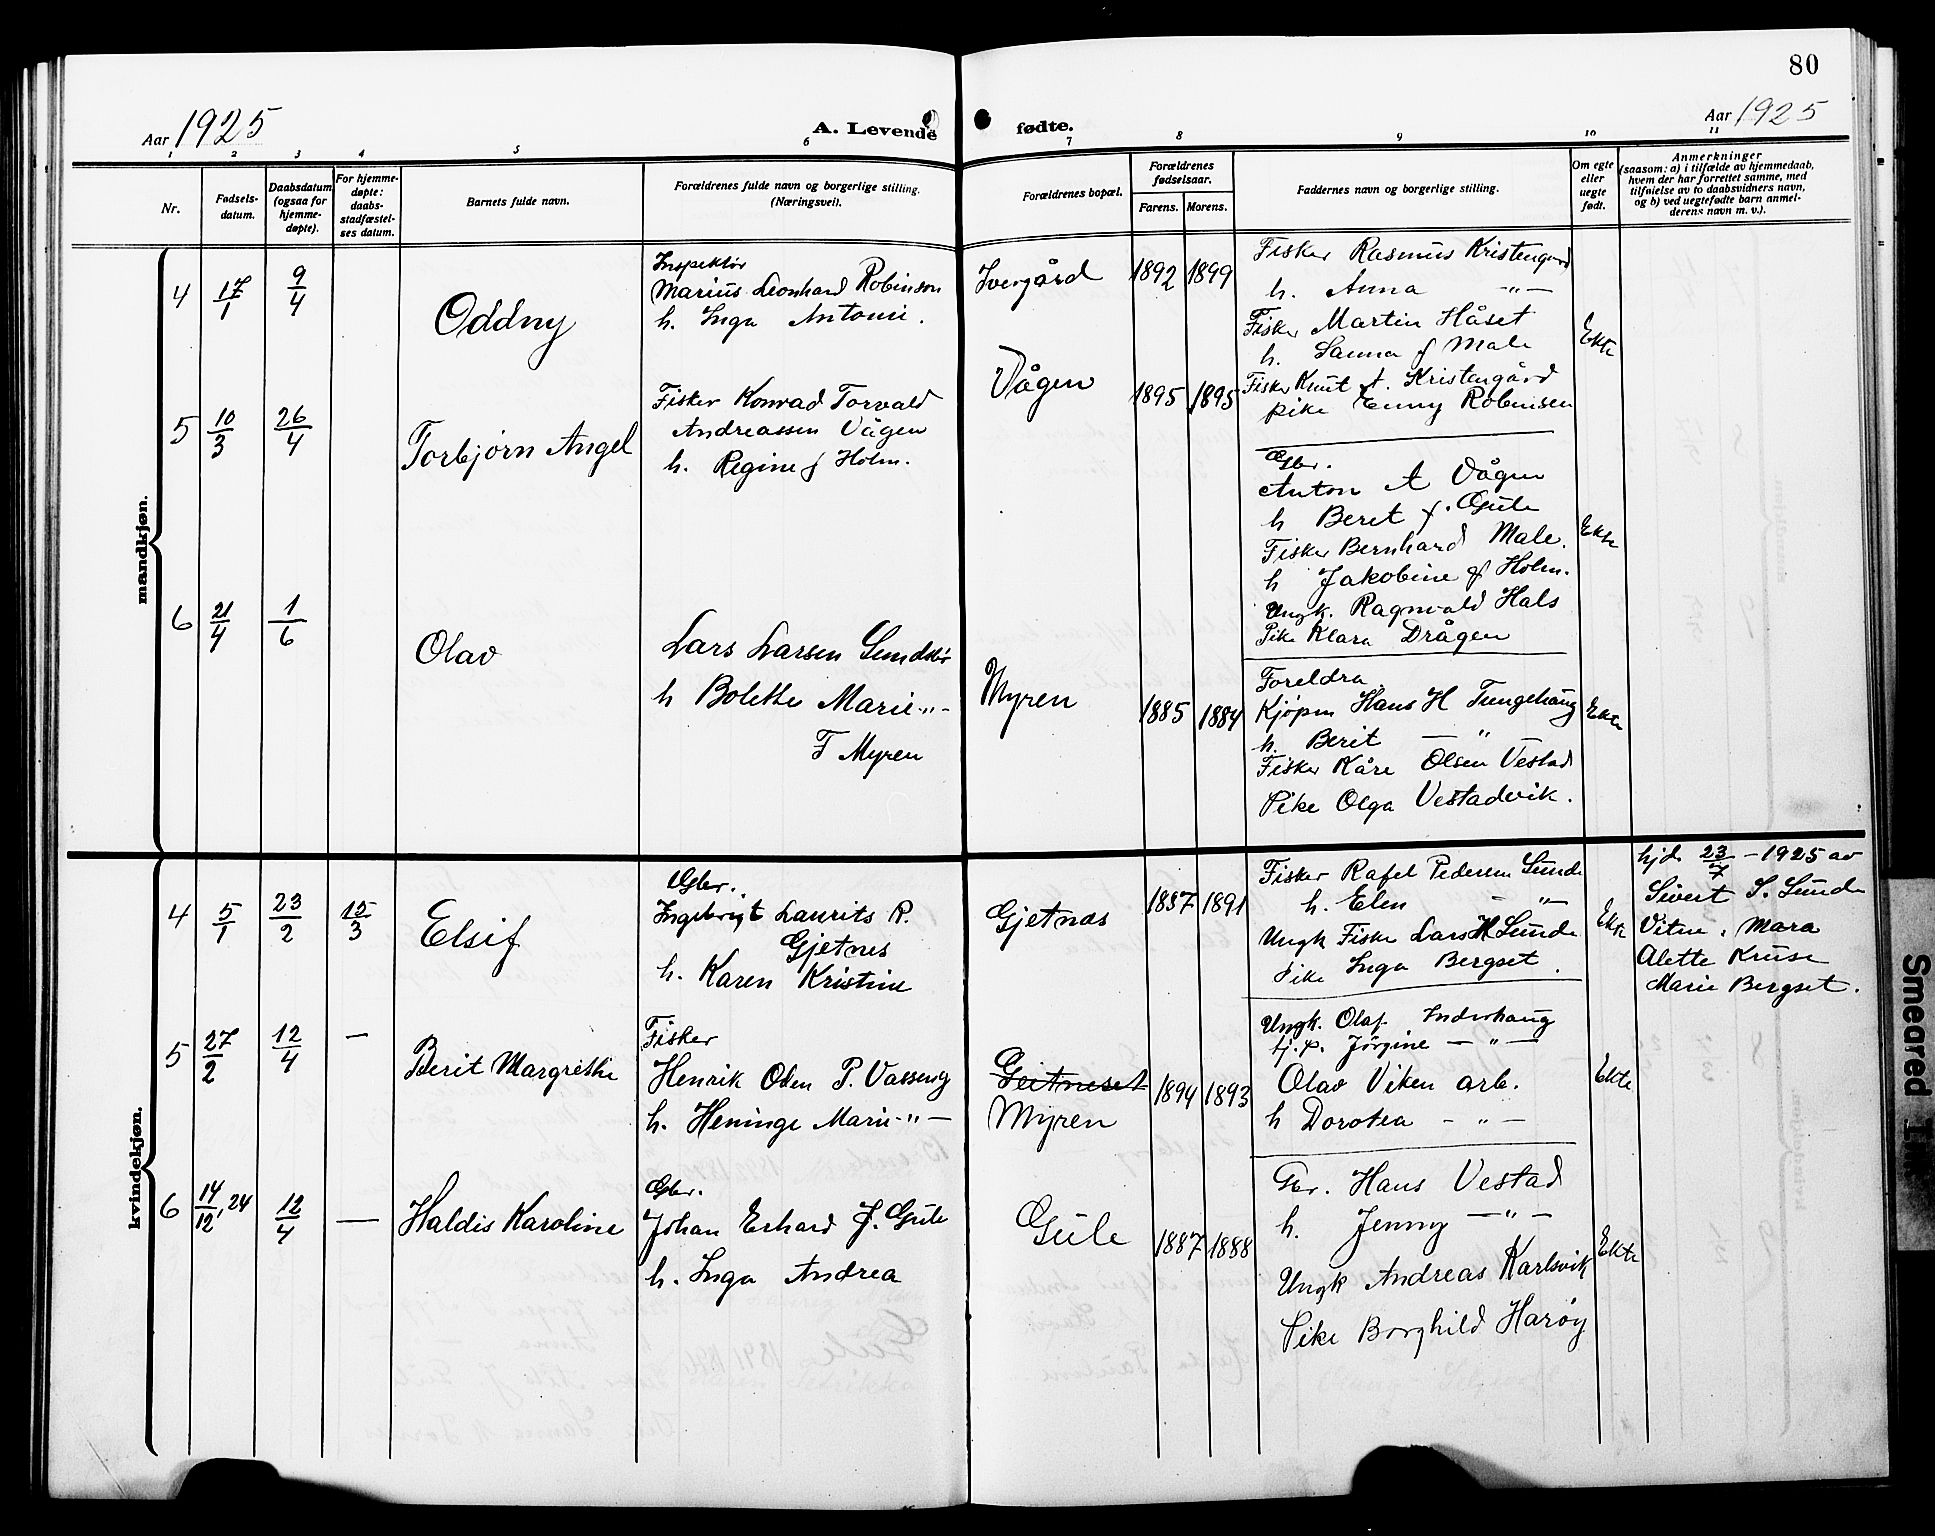 80
Aar 1925
A. Levende fødte.
Aar 1925
1 2 3 4 5 6 7 8 9 10 11
Nr.
Fødsels-
datum.
Daabsdatum
(ogsaa for
hjemme-
døpte).
For hjemme-
døpte:
daabs-
stadfæstel-
ses datum.
Barnets fulde navn.
Forældrenes fulde navn og borgerlige stilling.
(Næringsvei).
Forældrenes bopæl.
Forældrenes
fødselsaar.
Farens. Morens.
Faddernes navn og borgerlige stilling.
Om egte
eller
uegte
født.
Anmerkninger
(saasom: a) i tilfælde av hjemmedaab,
hvem der har forrettet samme, med
tilføielse av to daabsvidners navn,
og b) ved uegtefødte barn anmel-
derens navn m. v.).
mandkjøn.
4 17/1 9/4 Oddny
Inspektør
Marius Leonhard Robinson
h. Inga Antonie.
Ivergård 1892 1899
Fisker Rasmus Kristengård
h. Anna -"-
Fisker Martin Håset
h. Sanna f Male
Fisker Knut A. Kristengård
pike Enny Robinsen
Ekte
5 10/3 26/4 Torbjørn Angel
Fisker Konrad Torvald
Andreassen Vågen
h. Regine f Holm.
Vågen 1895 1895
Gbr.
Anton A Vågen
h Beret f. Gule
Fisker Bernhard Male.
h Jakobine f Holm.
Ungk. Ragnvald Hals
Pike Klara Drågen
Ekte
6 21/4 1/6 Olav
Lars Larsen Sundsbø
h Bolette Marie -"-
F Myren
Myren 1885 1884
Foreldra
Kjøpm Hans H Tungehaug
h. Berit -"-
Fisker Kåre Olsen Vestad
Pike Olga Vestadvik.
Ekte
kvindekjøn.
4 5/1 23/2 15/3 Elsif
Gbr.
Ingebrigt Laurits R.
Gjetnes
h. Karen Kristine
Gjetnas 1887 1891
Fisker Rafel Pedersen Sunde
h. Elen -"-
Ungk Fisker Lars H Sunde
Pike Inga Bergset.
Ekte
hjd. 23/7 - 1925 av
Sivert S. Sunde
Vitne, Mara
Alette Kruse
Marie Bergset.
5 27/2 12/4 — Berit Margrethe
Fisker
Henrik Olsen P. Vasseng
h. Heninge Marie -"-
Geitneset
Myren 1894 1893
Ungk. Olaf Inderhaug
tj.p. Jørgine -"-
Olav Viken arb.
h Dorotea -"-
Ekte
6 14/12, 24 12/4 — Haldis Karoline
Gbr.
Johan Erhard J. Gule
h. Inga Andrea
Gule 1887 1888
Gbr. Hans Vestad
h. Jenny -"-
Ungk Andreas Karlsvik
Pike Borghild Harøy
Ekte
Smeared Ink